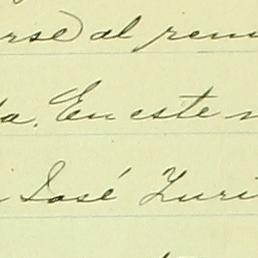 rse) al rem
a. En este
José Zuri